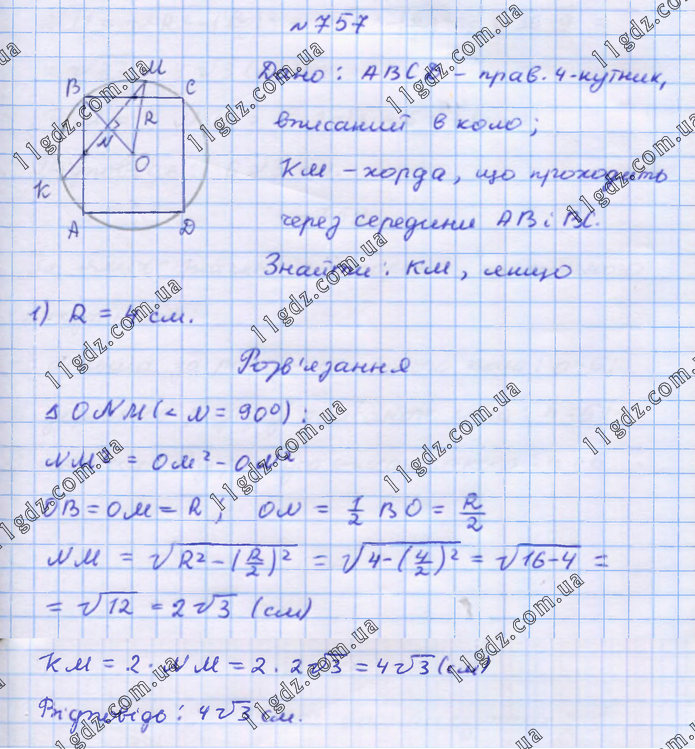 №757
B M C
R
N
O
K
A D
Дано: ABCD - прав. 4-кутник,
вписаний в коло;
KM - хорда, що проходить
через середини AB і BC.
Знайти: KM, якщо
1) R = 4 см.
Розв'язання
Δ ONM (< N = 90°):
NM² = OM² - ON²
OB = OM = R; ON = 1/2 BO = R/2
NM = √R² - (R/2)² = √4 - (4/2)² = √16 - 4 =
= √12 = 2√3 (см)
KM = 2 · NM = 2 · 2√3 = 4√3 (см)
Відповідь: 4√3 см.
11gdz.com.ua